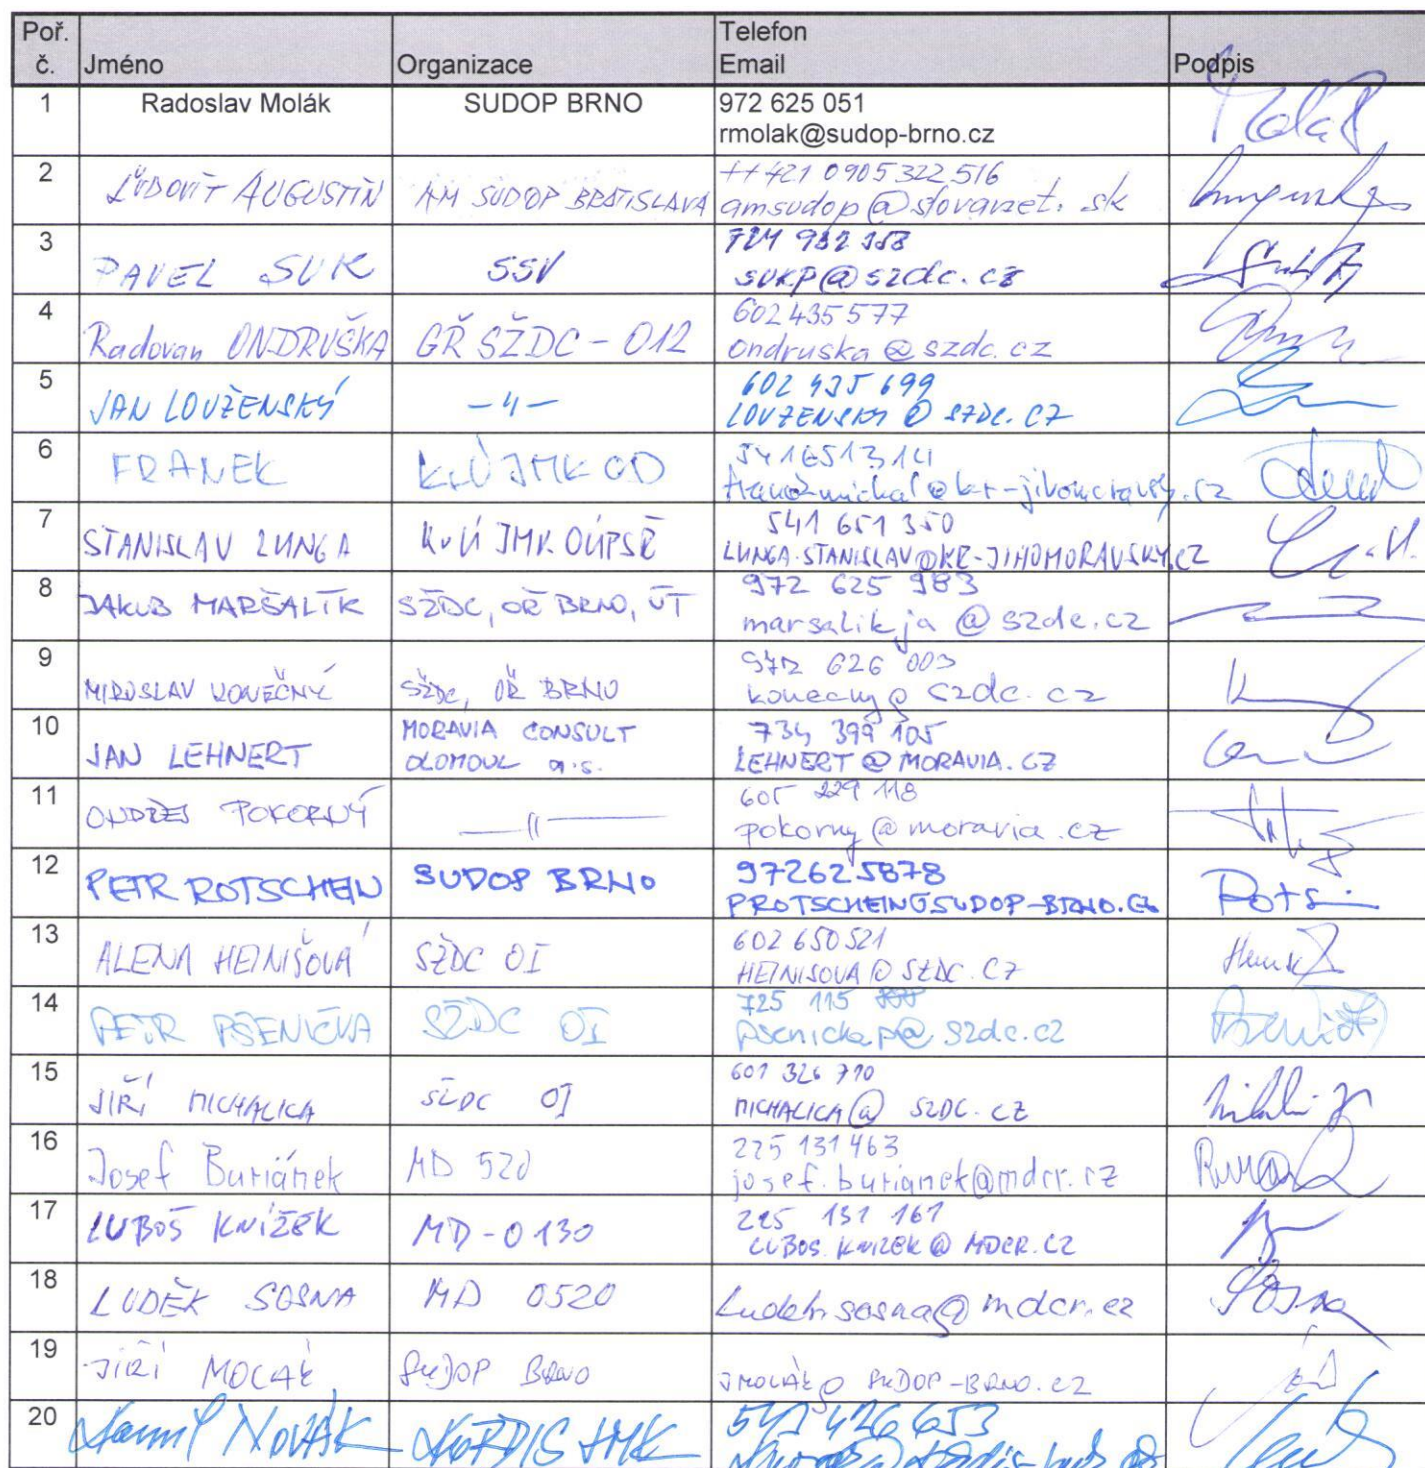 Poř. č. Jméno Organizace Telefon Email Podpis
1 Radoslav Molák SUDOP BRNO 972 625 051
rmolak@sudop-brno.cz
2 ĽUDOVÍT AUGUSTÍN AM SUDOP BRATISLAVA ++421 0905 322 516
amsudop@slovanet.sk
3 PAVEL SUK SSV
sukp@szdc.cz
4 Radovan ONDRUŠKA GŘ SŽDC - O12 602 435 577
ondruska@szdc.cz
5 JAN LOUŽENSKÝ -〃- 602 435 699
LOUZENSKY@SZDC.CZ
6 FRANEK KrÚ JMK OD 541651314
7 STANISLAV LUNGA KrÚ JMK OÚPSŘ 541 651 350
LUNGA.STANISLAV@KR-JIHOMORAVSKY.CZ
8 JAKUB MARŠALÍK SŽDC, OŘ BRNO, ÚT 972 625 983
marsalikja@szdc.cz
9 MIROSLAV KONEČNÝ SŽDC, OŘ BRNO 972 626 003
konecny@szdc.cz
10 JAN LEHNERT MORAVIA CONSULT OLOMOUC a.s. 734 399 105
LEHNERT@MORAVIA.CZ
11 ONDŘEJ POKORNÝ —〃— 605 229 118
pokorny@moravia.cz
12 PETR ROTSCHEIN SUDOP BRNO 972625878
PROTSCHEIN@SUDOP-BRNO.CZ
13 ALENA HEINIŠOVÁ SŽDC OI 602 650 521
HEINISOVA@SZDC.CZ
14 PETR PŠENIČKA SŽDC OI 725 115
psenickap@szdc.cz
15 JIŘÍ MICHALICA SŽDC OI 601 326 710
MICHALICA@SZDC.CZ
16 Josef Buriánek MD 520 225 131 463
josef.burianek@mdcr.cz
17 LUBOŠ KNÍŽEK MD-O130 225 131 161
LUBOS.KNIZEK@MDCR.CZ
18 LUDĚK SOSNA MD O520 Ludek.sosna@mdcr.cz Sosna
19 JIŘÍ MOLÁK SUDOP BRNO JMOLAK@SUDOP-BRNO.CZ
20 Kamil NOVÁK KORDIS JMK 541 426 653